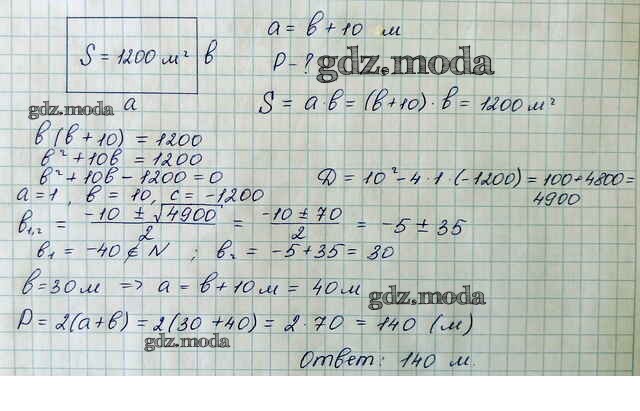 a = b + 10 м
S = 1200 м² b
P - ?
gdz.moda
gdz.moda
a
S = a·b = (b+10)·b = 1200 м²
b (b + 10) = 1200
b² + 10b = 1200
b² + 10b - 1200 = 0
D = 10² - 4·1·(-1200) = 100 + 4800 =
4900
a = 1, b = 10, c = -1200
b₁,₂ = (-10 ± √4900)/2 = (-10 ± 70)/2 = -5 ± 35
b₁ = -40 ∉ N ; b₂ = -5 + 35 = 30
b = 30 м => a = b + 10 м = 40 м
gdz.moda
P = 2(a+b) = 2(30 + 40) = 2·70 = 140 (м)
gdz.moda
Ответ: 140 м.